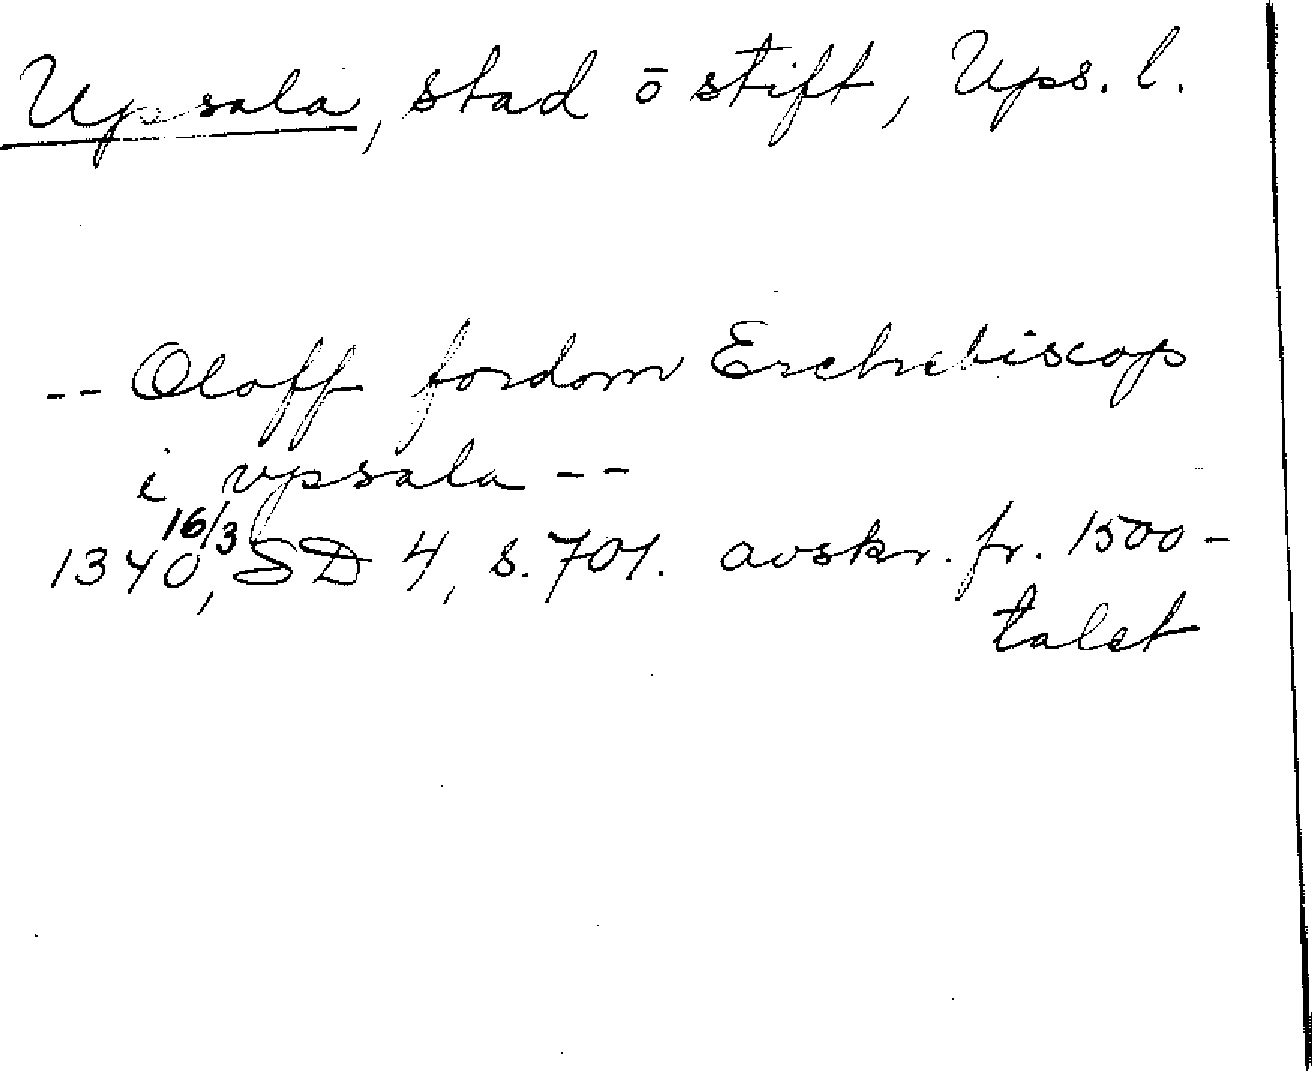 Upsala, stad ō stift, Ups. l.
-- Oloff fordom Erchebiscop
i vpsala --
1340 16/3, SD 4, s. 701. avskr. fr. 1500-
talet